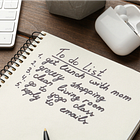 To do list
1. get lunch with mom
2. grocery shopping
3. clean living room
4. go to yoga class
5. reply to emails